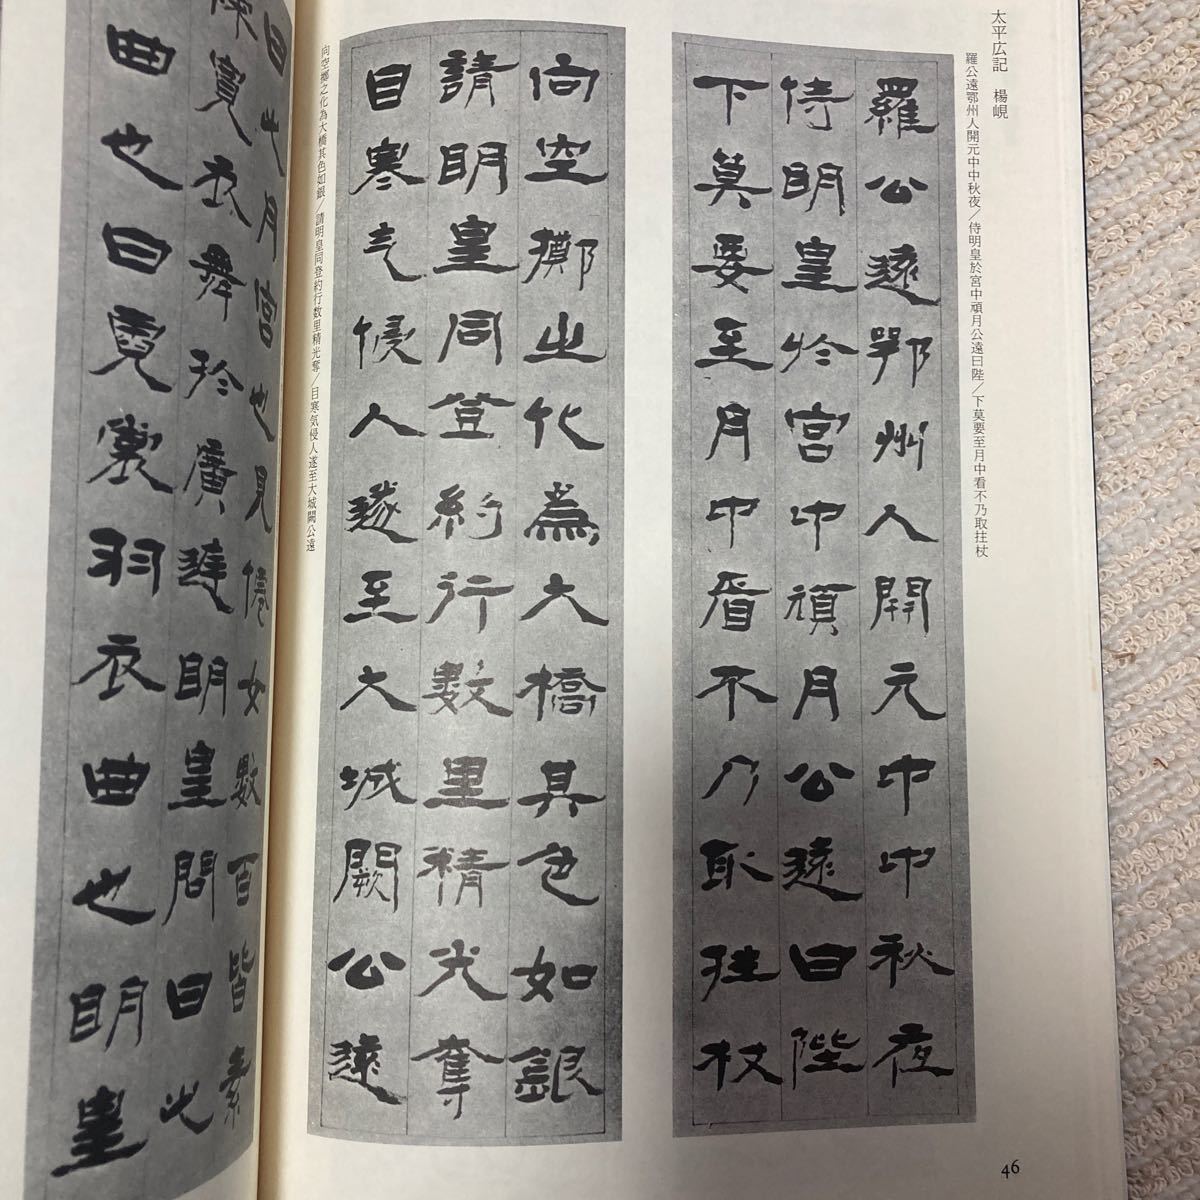 太平広記　楊峴
羅公遠鄂州人開元中中秋夜／侍明皇於宮中頑月公遠曰陛／下莫要至月中看不乃取拄杖
羅公遠鄂州人開元中中秋夜
侍明皇於宮中頑月公遠曰陛
下莫要至月中看不乃取拄杖
向空擲之化為大橋其色如銀／請明皇同登約行数里精光奪／目寒気侵人遂至大城闕公遠
向空擲之化為大橋其色如銀
請明皇同登約行數里精光奪
目寒气侵人遂至大城闕公遠
曰此月宮也見僊女數百皆素
練寬衣舞於廣庭明皇問曰此
曲也曰霓裳羽衣曲也明皇
46